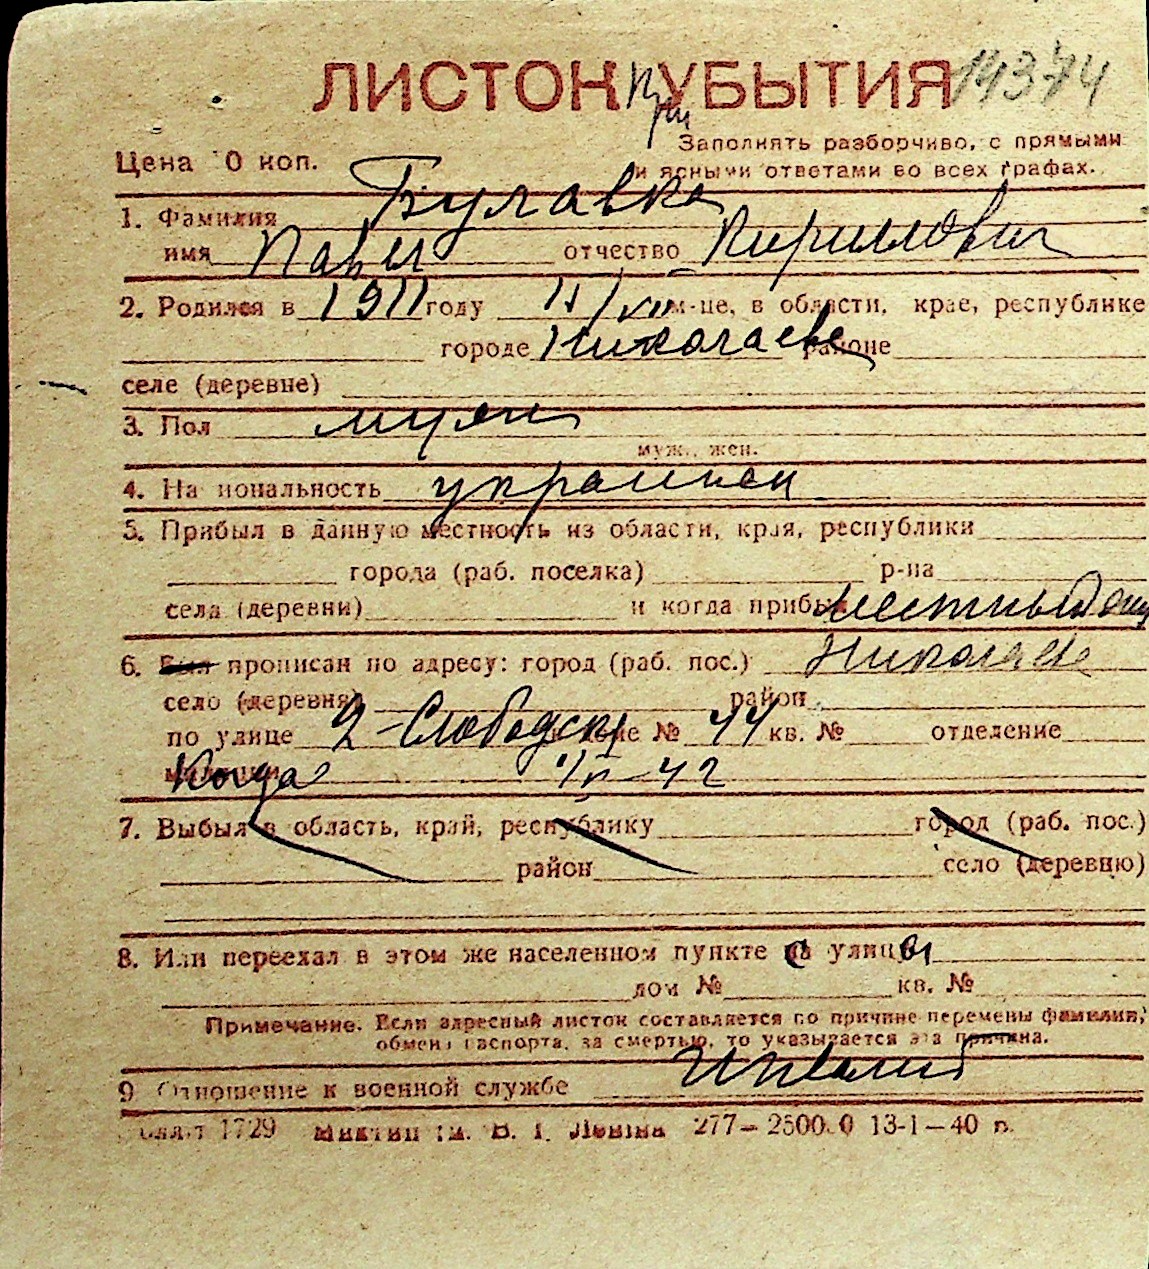 ЛИСТОК УБЫТИЯ 14374
При
Заполнять разборчиво, с прямыми
Цена 0 коп. и ясными ответами во всех графах.
1. Фамилия Булавка
имя Павел отчество Кириллович
2. Родился в 1911 году м-це, в области, крае, республике
городе Николаеве районе
селе (деревне)
3. Пол муж
муж., жен.
4. Национальность украинец
5. Прибыл в данную местность из области, края, республики
города (раб. поселка) р-на
села (деревни) и когда прибыл местный
6. Был прописан по адресу: город (раб. пос.) Николаев
село (деревня) район
по улице 2-Слободск № 44 кв. № отделение
милиции Когда
7. Выбыл в область, край, республику город (раб. пос.)
район село (деревню)
8. Или переехал в этом же населенном пункте с улицы
дом № кв. №
Примечание. Если адресный листок составляется по причине перемены фамилии,
обмена паспорта, за смертью, то указывается эта причина.
9 Отношение к военной службе Инвалид
1729 В. І. Леніна 277–2500.0 13-1–40 р.